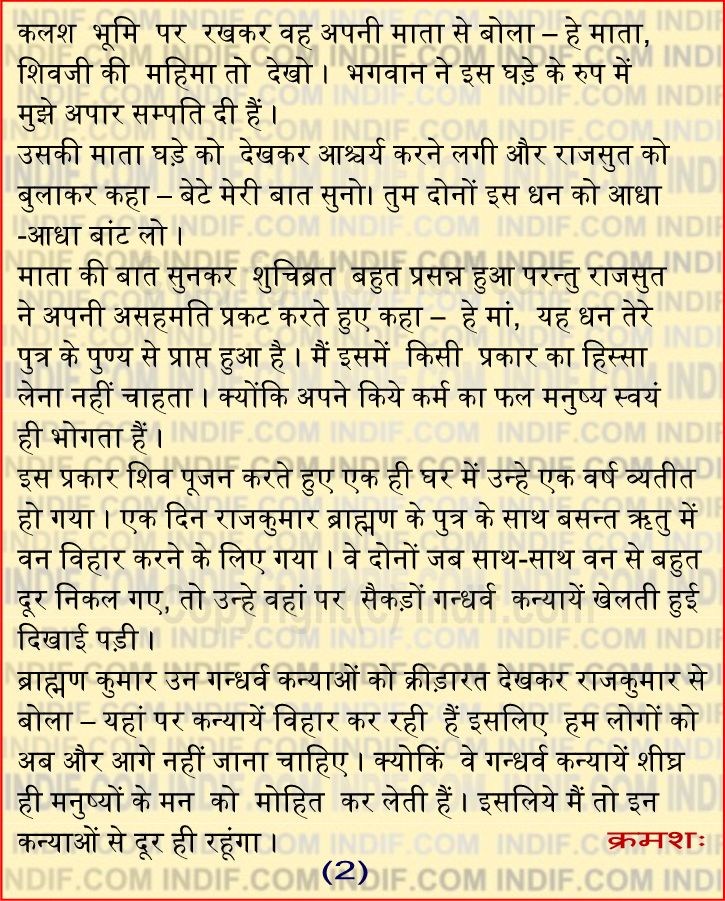 कलश भूमि पर रखकर वह अपनी माता से बोला – हे माता,
शिवजी की महिमा तो देखो। भगवान ने इस घड़े के रुप में
मुझे अपार सम्पति दी हैं।
उसकी माता घड़े को देखकर आश्चर्य करने लगी और राजसुत को
बुलाकर कहा – बेटे मेरी बात सुनो। तुम दोनों इस धन को आधा
-आधा बांट लो।
माता की बात सुनकर शुचिब्रत बहुत प्रसन्न हुआ परन्तु राजसुत
ने अपनी असहमति प्रकट करते हुए कहा – हे मां, यह धन तेरे
पुत्र के पुण्य से प्राप्त हुआ है। मैं इसमें किसी प्रकार का हिस्सा
लेना नहीं चाहता। क्योंकि अपने किये कर्म का फल मनुष्य स्वयं
ही भोगता हैं।
इस प्रकार शिव पूजन करते हुए एक ही घर में उन्हे एक वर्ष व्यतीत
हो गया। एक दिन राजकुमार ब्राह्मण के पुत्र के साथ बसन्त ऋतु में
वन विहार करने के लिए गया। वे दोनों जब साथ-साथ वन से बहुत
दूर निकल गए, तो उन्हे वहां पर सैकड़ों गन्धर्व कन्यायें खेलती हुई
दिखाई पड़ी।
ब्राह्मण कुमार उन गन्धर्व कन्याओं को क्रीड़ारत देखकर राजकुमार से
बोला – यहां पर कन्यायें विहार कर रही हैं इसलिए हम लोगों को
अब और आगे नहीं जाना चाहिए। क्योकिं वे गन्धर्व कन्यायें शीघ्र
ही मनुष्यों के मन को मोहित कर लेती हैं। इसलिये मैं तो इन
कन्याओं से दूर ही रहूंगा। क्रमशः
(2)